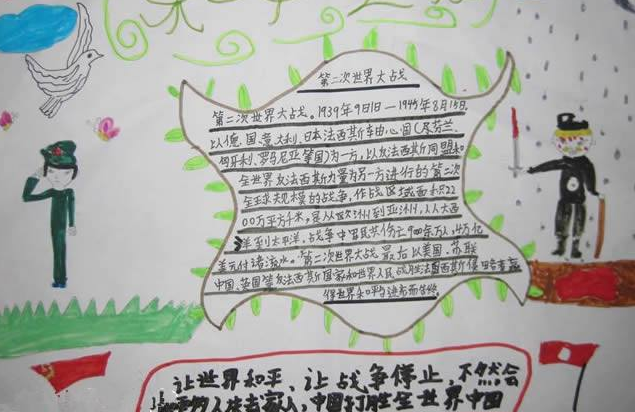 第二次世界大战
第二次世界大战。1939年9月1日—1945年8月15日
以德国、意大利、日本法西斯轴心国(及芬兰、
匈牙利、罗马尼亚等国)为一方,以反法西斯同盟和
全世界反法西斯力量为另一方进行的第二次
全球规模的战争,作战区域面积22
00万平方千米,从欧洲到亚洲,从大西
洋到太平洋,战争中军民共伤亡900余万人,4万亿
美元付诸流水。第二次世界大战最后以美国、苏联
中国、英国等反法西斯国家和世界人民战胜法西斯侵略者赢
得世界和平与进步而告终。
让世界和平、让战争停止,不然会
的人失去家人,中国打胜全世界中国